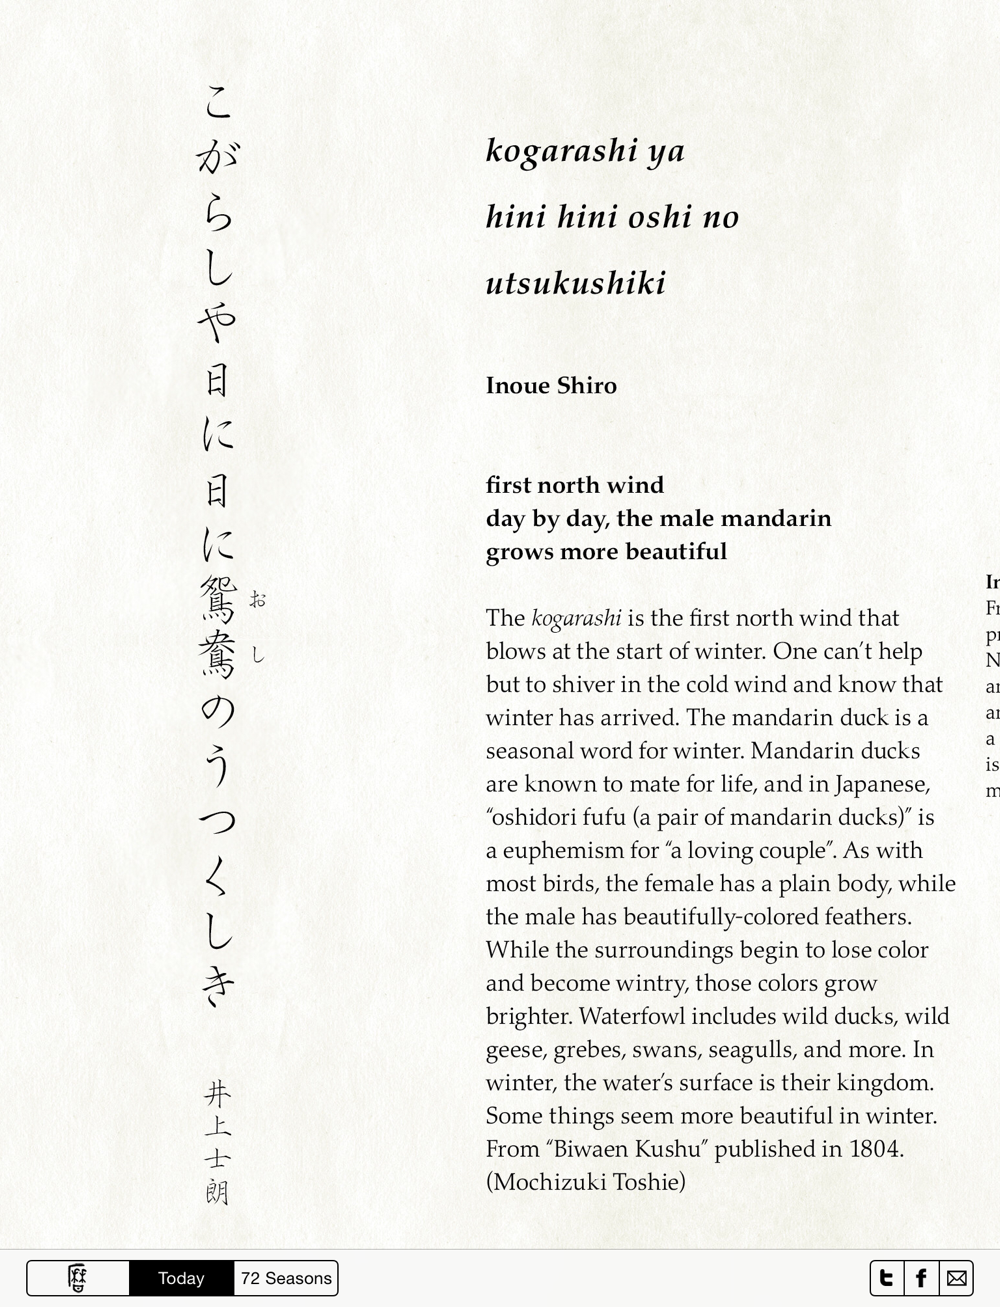 こがらしや日に日に鴛鴦のうつくしき
おし
井上士朗
kogarashi ya
hini hini oshi no
utsukushiki
Inoue Shiro
first north wind
day by day, the male mandarin
grows more beautiful
The kogarashi is the first north wind that
blows at the start of winter. One can’t help
but to shiver in the cold wind and know that
winter has arrived. The mandarin duck is a
seasonal word for winter. Mandarin ducks
are known to mate for life, and in Japanese,
“oshidori fufu (a pair of mandarin ducks)” is
a euphemism for “a loving couple”. As with
most birds, the female has a plain body, while
the male has beautifully-colored feathers.
While the surroundings begin to lose color
and become wintry, those colors grow
brighter. Waterfowl includes wild ducks, wild
geese, grebes, swans, seagulls, and more. In
winter, the water’s surface is their kingdom.
Some things seem more beautiful in winter.
From “Biwaen Kushu” published in 1804.
(Mochizuki Toshie)
a
is
Today
72 Seasons